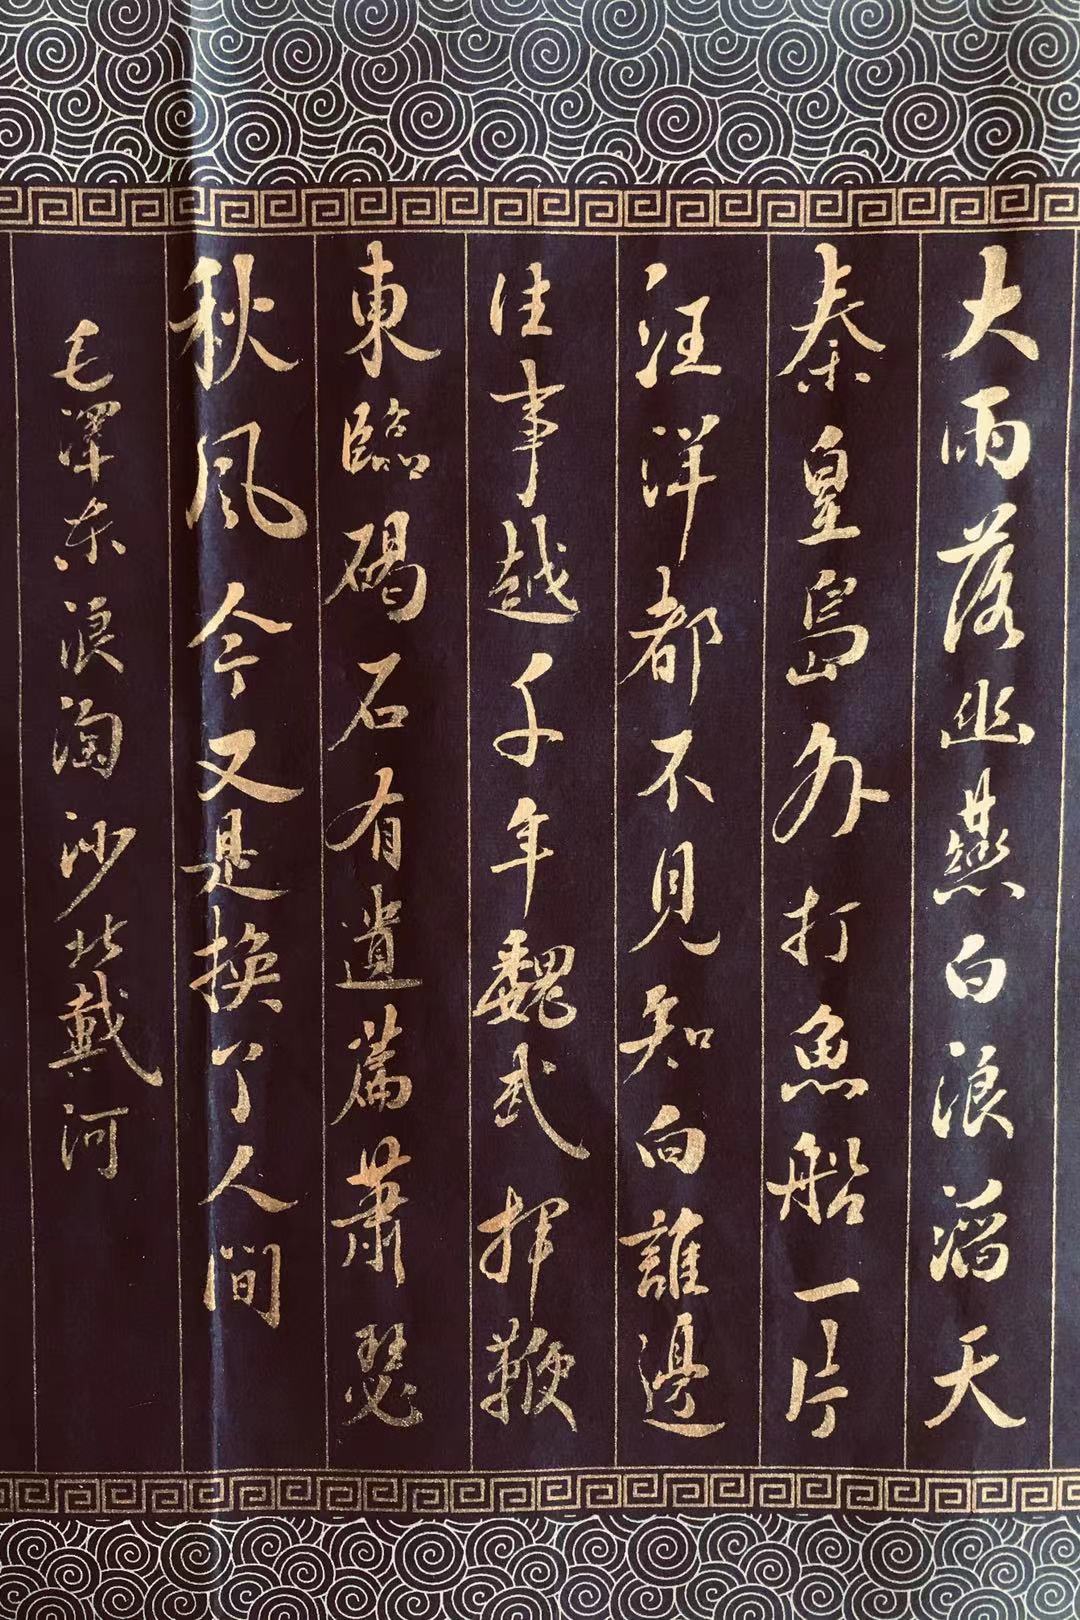 大雨落幽燕白浪滔天
秦皇島外打魚船一片
汪洋都不見知向誰邊
往事越千年魏武揮鞭
東臨碣石有遺篇蕭瑟
秋風今又是換了人間
毛澤东浪淘沙北戴河